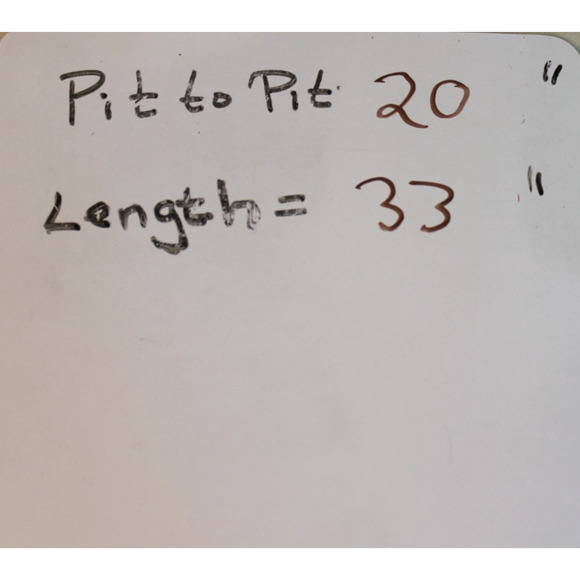 Pit to Pit 20 "
Length = 33 "